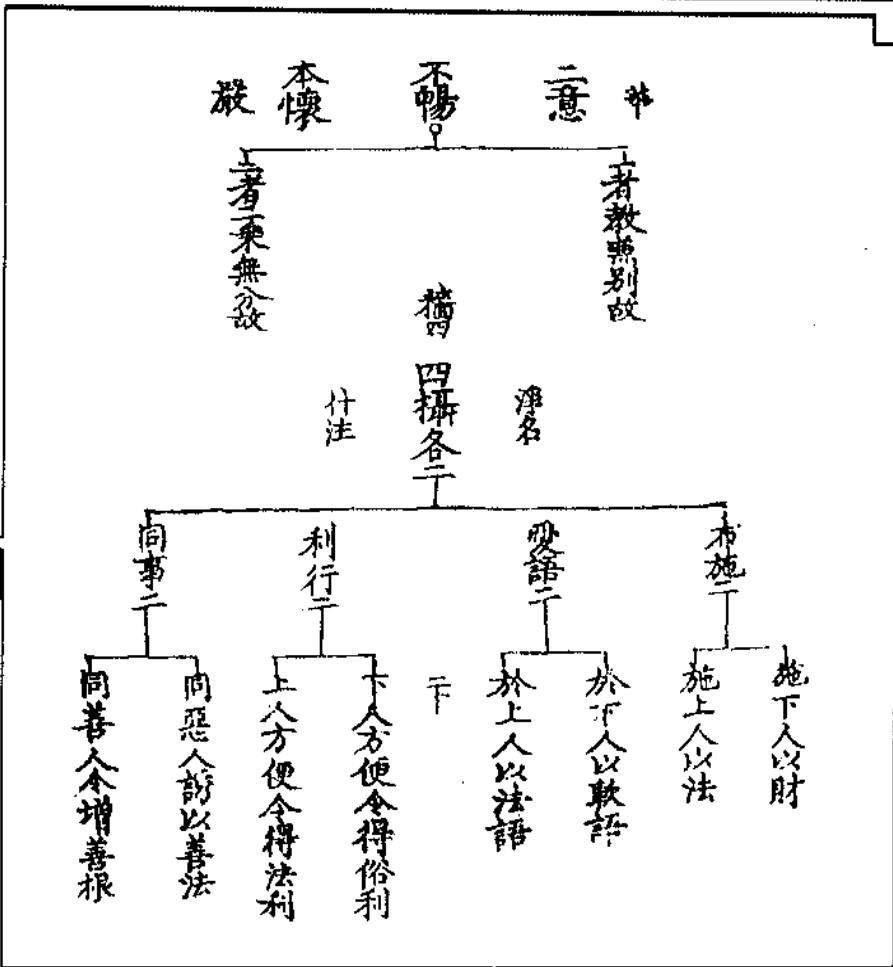 二意
不暢
本懷
嚴
一者教無別故
二者二乘無分故
四攝各二
淨名
什注
布施二
施下人以財
施上人以法
愛語二
於下人以軟語
於上人以法語
二下
利行二
下人方便令得俗利
上人方便令得法利
同事二
同惡人誘以善法
同善人令增善根